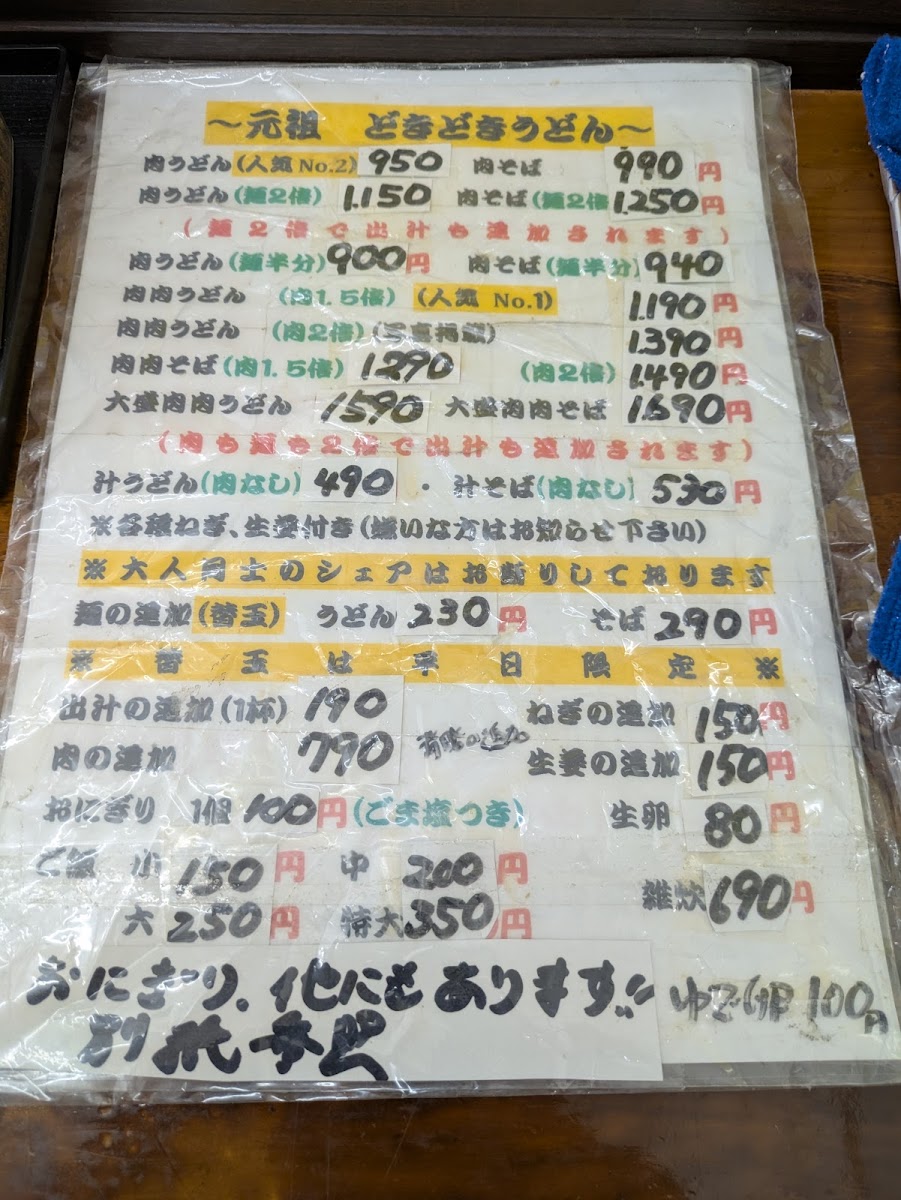 ～元祖 どきどきうどん～
肉うどん(人気 No.2) 950 肉そば 990円
肉うどん(麺2倍) 1.150 肉そば(麺2倍 1.250円
(麺2倍で出汁も追加されます)
肉うどん(麺半分) 900円 肉そば(麺半分) 940
肉肉うどん (肉1.5倍) (人気 No.1) 1.190円
肉肉うどん (肉2倍) (写真掲載) 1.390円
肉肉そば(肉1.5倍) 1.290 (肉2倍) 1.490円
大盛肉肉うどん 1590 大盛肉肉そば 1.690円
(肉も麺も2倍で出汁も追加されます)
汁うどん(肉なし) 490 ・ 汁そば(肉なし) 530円
※各種ねぎ、生姜付き(嫌いな方はお知らせ下さい)
※大人同士のシェアはお断りしております
麺の追加(替玉) うどん 230円 そば 290円
※替玉は平日限定※
出汁の追加(1杯) 190 ねぎの追加 150円
肉の追加 790 生姜の追加 150円
おにぎり 1個 100円(ごま塩つき) 生卵 80円
ご飯 小 150円 中 200円 雑炊 690円
大 250円 特大 350円
おにぎり、他にもあります!!
別紙参照
ゆで卵 100円